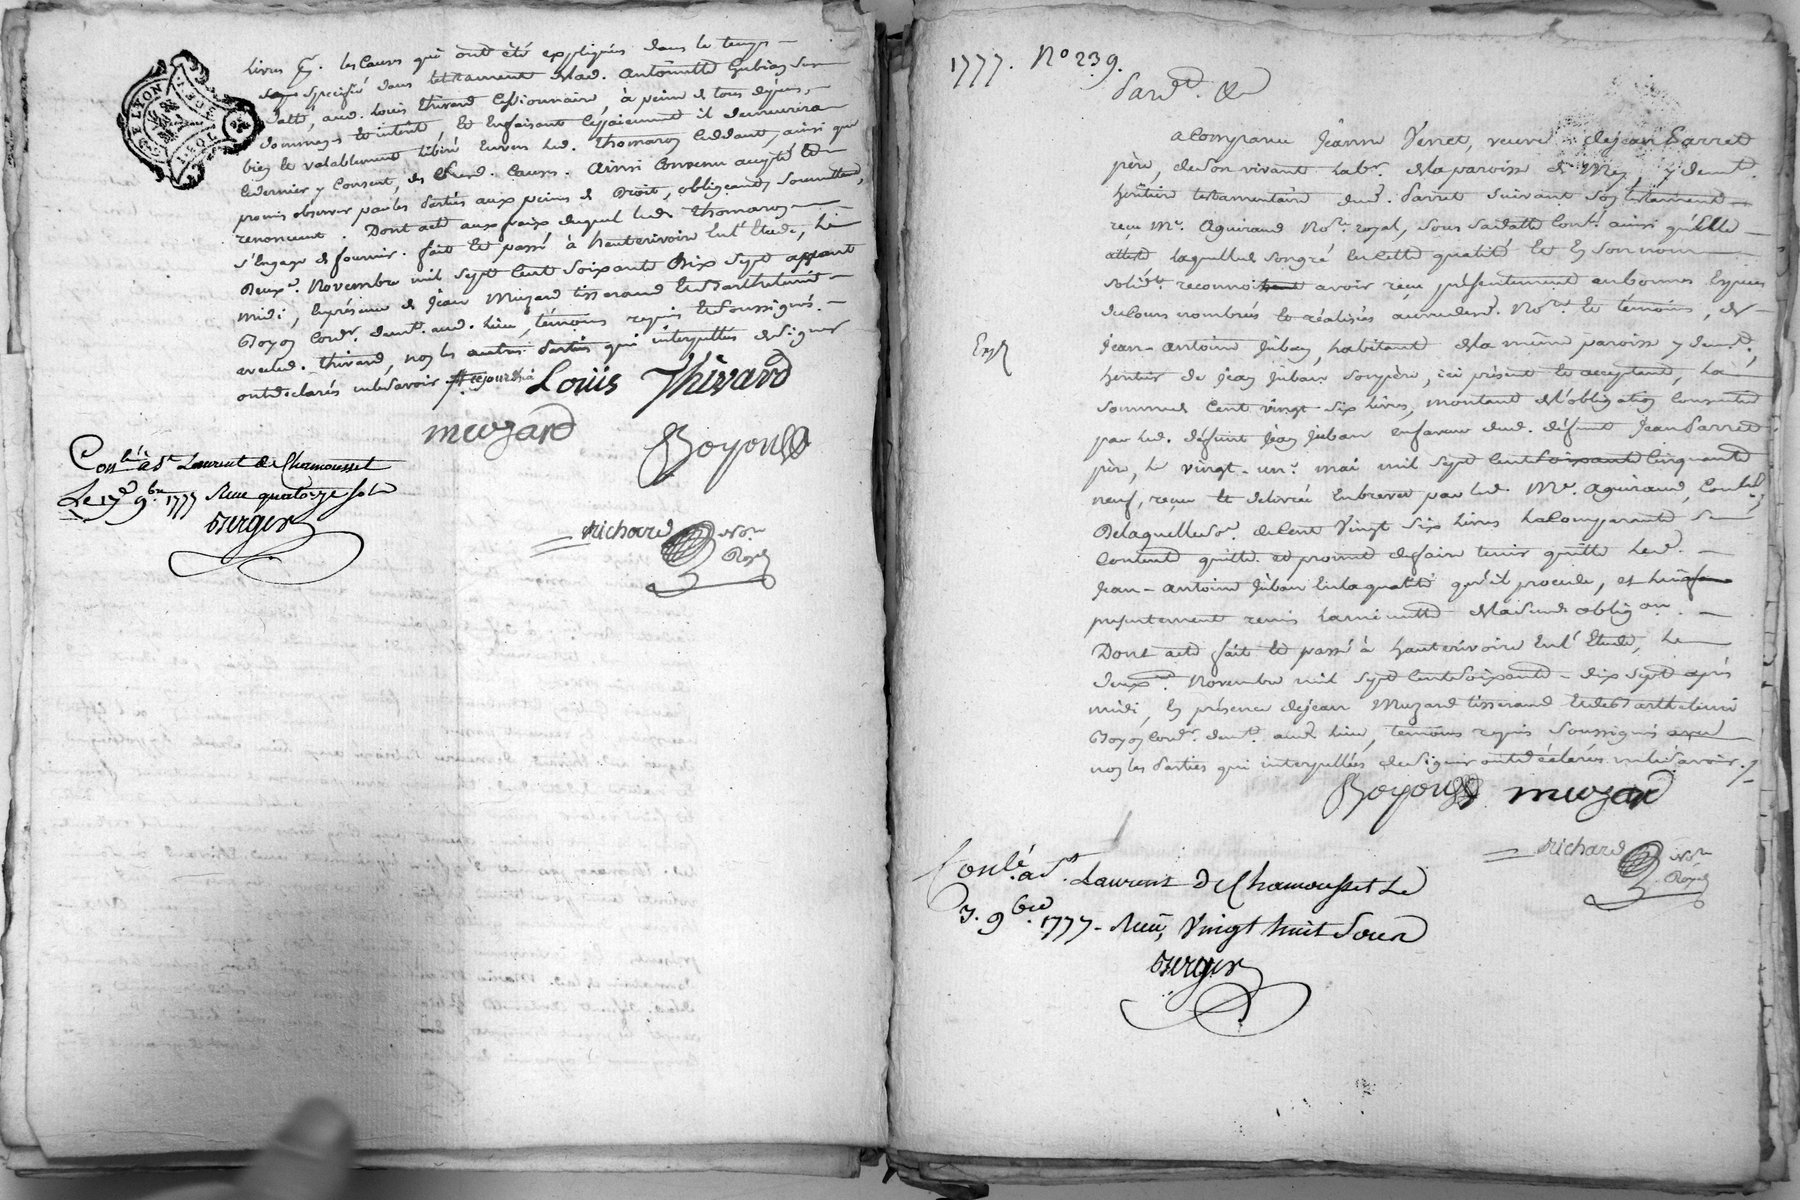 livres les causes qui ont été expliqués dans le temps
specifié dans testament de lad. antoinette
datte, aud. louis thivard cessionnaire, à peine de tous dépens,
dommages et interet, et en faisant le paiement il demeurera
bien et valablement libéré envers led. thomaron cédant, ainsi que
ce dernier y consent, des causes. ainsi convenu accepté et
promis observer par les parties aux peines de droit, obligeants, soumettants,
renonceant. Dont acte aux fraix duquel led. thomaron
s'engage de fournir. fait et passé à hauterivoire en l'Etude, le
deuxe. Novembre mil sept cent soixante dix sept avant
midi, en présence de jean Muzard tisserand et de barthelemi
Boyon cordr. demt. aud. lieu, témoins requis et soussignés
avec led. thivard, non les autres parties qui interpellées de signer
ont déclarés ne le savoir
Louis Thivard
muzard
Boyon
Conlé à St Laurent de Chamousset
Le 9bre 1777 Reçu quatorze sols
Berger
Richard Nore
Royal
1777. No 239.
Pardt
a Comparu jeanne Venet, veuve de jean Parret
père, de son vivant labr. de la paroisse de y demt.
héritière testamentaire dud. Parret suivant son testament
reçu Me. aguiraud Nore royal, sous sa datte conlé ainsi qu'elle
atteste laquelle de son gré en cette qualité et en son nom
solidt reconnoi avoir reçu présentement en bonnes Especes
de cours nombrés et réalisés au vu desd. Nore et témoins, de
jean-antoine juban, habitant de la même paroisse y demt.,
heritier de jean juban son père, ici présent et acceptant, la
somme de cent vingt six livres, montant de l'obligation consentie
par led. défunt jean juban en faveur dud. défunt jean Parret
père, le vingt-un mai mil sept cent soixante cinquante
neuf, reçue et delivrée en brevet par led. Me. aguiraud, Conlé,
De laquelle se. de cent vingt six livres la Comparante se
contente quitte et promet de faire tenir quitte led.
jean-antoine juban en la qualité qu'il procede, et lui a
présentement remis la minutte de la susd. obligaon.
Dont acte fait et passé à hauterivoire en l'Etude, le
deuxe. Novembre mil sept cent soixante-dix sept après
midi, en présence de jean Muzard tisserand et de barthelemi
Boyon cordr. demt. aud. lieu, temoins requis soussignés
non les parties qui interpellées de signer ont déclarés ne le savoir./.
Boyon muzard
Richard Nore
Royal
Conlé à St. Laurent de Chamousset le
9bre 1777. Reçu Vingt huit Sous
Berger